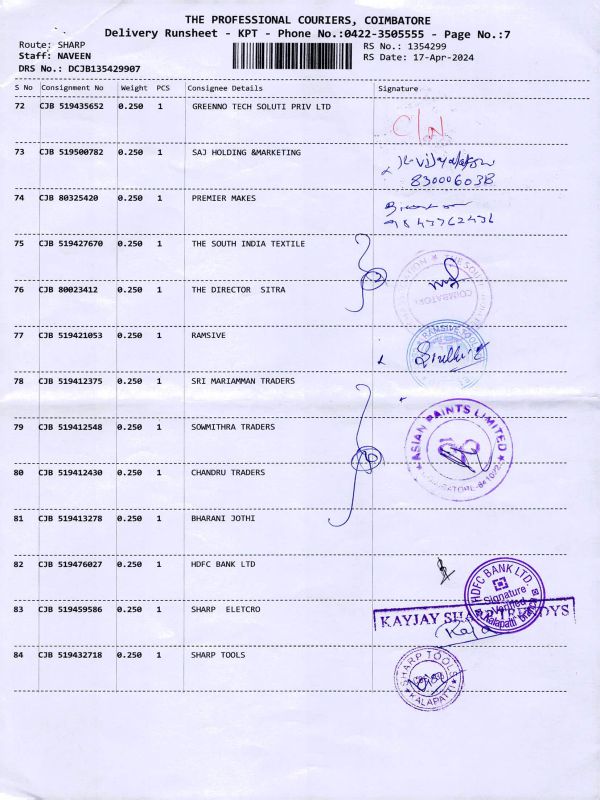 THE PROFESSIONAL COURIERS, COIMBATORE
Delivery Runsheet - KPT - Phone No.:0422-3505555 - Page No.:7
Route: SHARP
RS No.: 1354299
Staff: NAVEEN
RS Date: 17-Apr-2024
DRS No.: DCJB135429907
S No Consignment No Weight PCS Consignee Details Signature
72 CJB 519435652 0.250 1 GREENNO TECH SOLUTI PRIV LTD
C/N
73 CJB 519500782 0.250 1 SAJ HOLDING &MARKETING
74 CJB 80325420 0.250 1 PREMIER MAKES
75 CJB 519427670 0.250 1 THE SOUTH INDIA TEXTILE
76 CJB 80023412 0.250 1 THE DIRECTOR SITRA
COIMBATORE
77 CJB 519421053 0.250 1 RAMSIVE
RAMSIVE TOOLS
78 CJB 519412375 0.250 1 SRI MARIAMMAN TRADERS
79 CJB 519412548 0.250 1 SOWMITHRA TRADERS
ASIAN PAINTS LIMITED
80 CJB 519412430 0.250 1 CHANDRU TRADERS
81 CJB 519413278 0.250 1 BHARANI JOTHI
82 CJB 519476027 0.250 1 HDFC BANK LTD
HDFC BANK LTD.
Signature
Verified
Kalapatti Branch
83 CJB 519459586 0.250 1 SHARP ELETCRO
KAYJAY SHARP TRENDYS
84 CJB 519432718 0.250 1 SHARP TOOLS
SHARP TOOLS
KALAPATTI